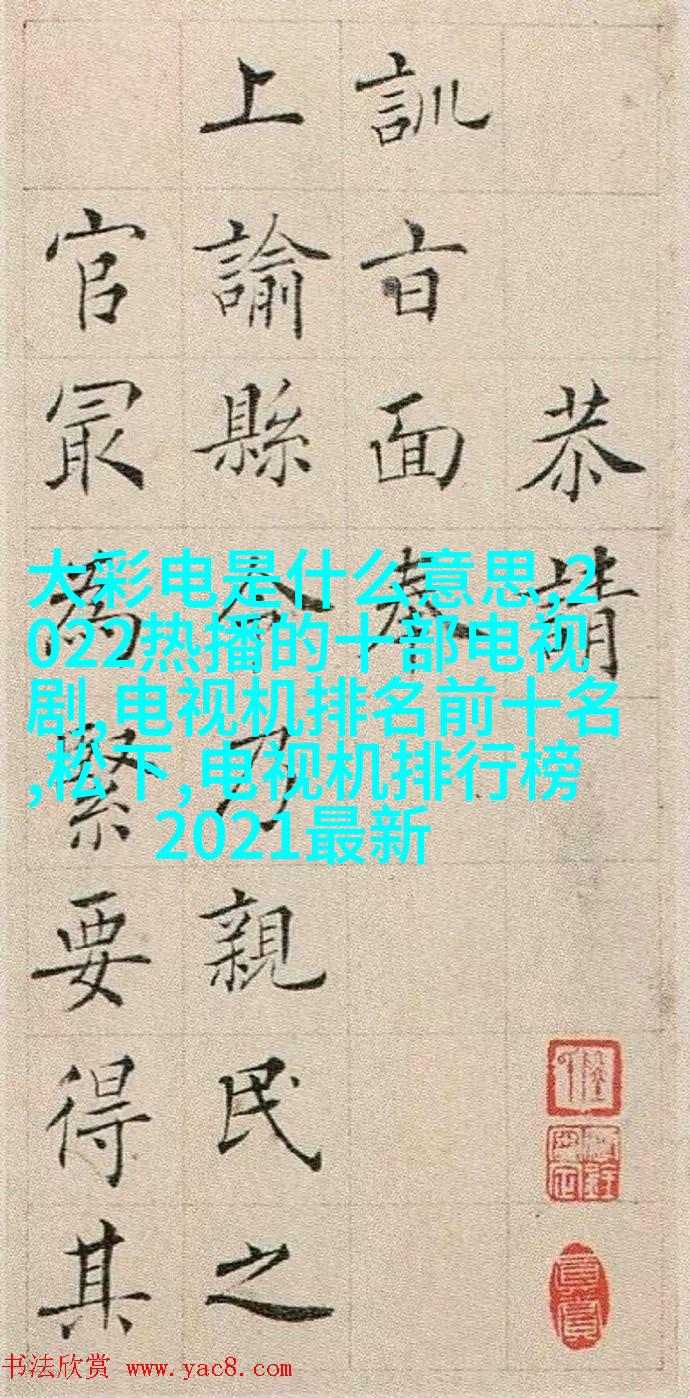 恭請
訓旨面奏
上諭縣令乃親民之
官冣為緊要得其
大彩电是什么意思,2
022热播的十部电视
剧,电视机排名前十名
,松下,电视机排行榜
2021最新
书法欣赏 www.yac8.com